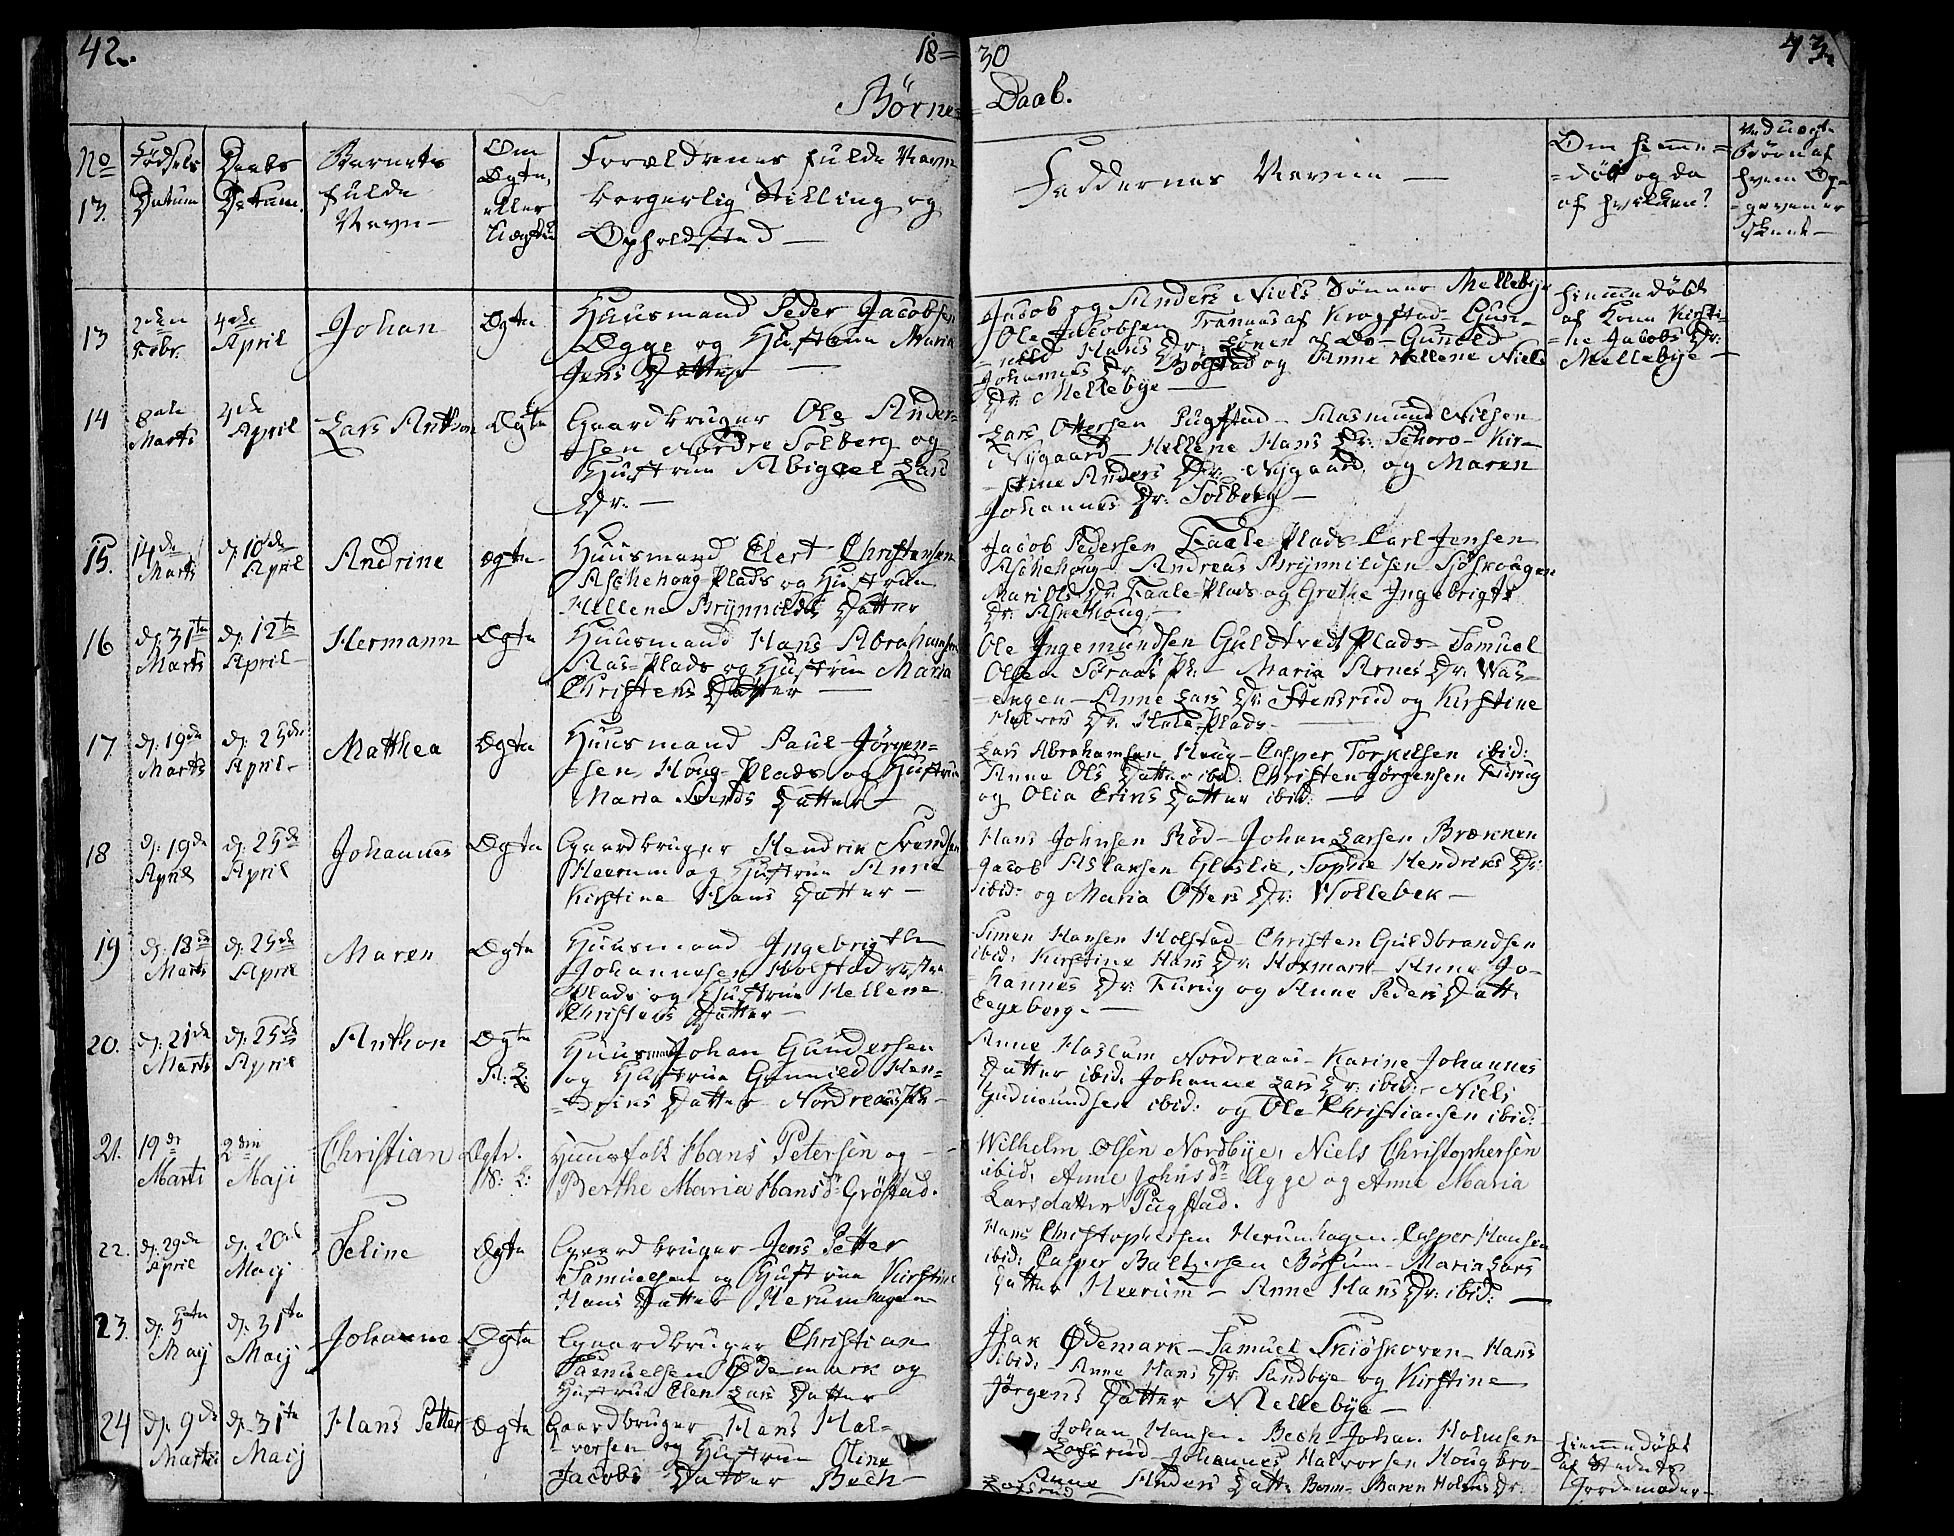 42.
18=
30
43.
Børne=
=Daab.
No
13.
Fødsels Datum
Daabs Datum.
Barnets fulde Navn-
Om Ægte, eller Uægte
Forældrenes fulde Navn
borgerlig Stilling og
Opholdsted —
Faddernes Navne —
Om hjemme=
=døbt og da
af hvilken?
Ved uægte
Børn af
hvem Op=
=gaven er
skeet —
13
2den Febr.
4de April
Johan
Ægte
Huusmand Peder Jacobsen
Ægge og Hustrue Maria
Jens Datter —
Jacob og Anders Niels Sønner Mellebye
Ole Jacobsen Tranaas af Krogstad - Gun-
-nild Hans Dr: Løken af Do - Gunild
Johannes Dr. Bølstad og Anne Hellene Niels
Dr: Mellebye —
hjemmedøbt
af Kone Kirsti-
-ne Jacobs Dr:
Mellebye —
14
8de Marts
4de April
Lars Anthon
Ægte
Gaardbruger Ole Ander=
=sen Nordre Solberg og
Hustrue Abigael Lars
Dr. —
Lars Ottersen Pugstad - Aasmund Nilsen
i Nygaard - Hellene Hans Dr: Schoro - Kir-
-stine Anders Dr: Nygaard og Maren
Johannes Dr: Solberg —
15.
14de Marts
d. 10de April
Andrine
Ægte
Huusmand Elert Christensen
Aschehoug-Plads og Hustrue
Hellene Brynnilds Datter
Jacob Pedersen Faale-Plads - Carl Jensen
Aschehoug - Andreas Brynnildsen Sjøskougen
Mari Ols Dr. Faale-Plads og Grethe Ingebrigts
Dr: Aschehoug. —
16
d. 31te Marts
d. 12te April
Hermann
Ægte
Huusmand Hans Abrahamsen
Aas-Plads og Hustrue Maria
Christens Datter —
Ole Ingemundsen Guldtvedt Plads - Samuel
Olsen Søraas Pl. - Maria Arnes Dr. Waa-
-engen - Anne Lars Dr. Stensrud og Kirstine
Halvors Dr. Plads —
17
d. 19de Marts
d. 25de April
Matthea
Ægte
Huusmand Paul Jørgen=
=sen, Houg-Plads og Hustrue
Maria Datter —
Lars Abrahamsen Houg - Casper Torkilsen ibid:
Anne Ols Datter ibid. Christen Jørgensen Furug
og Olia Eriks Datter ibid: —
18
d. 19de April
d. 25de April
Johannes
Ægte
Gaardbruger Hendrik Svendsen
Heerum og Hustrue Anne
Kirstine Hans Datter —
Hans Johnsen Rød - Johan Larsen Brækken
Jacob Aslaksen Gloslie, Sophie Hendriks Dr:
ibid: og Maria Otters Dr. Hollebek —
19
d. 18de Marts
d. 25de April
Maren
Ægte
Huusmand Ingebrigt
Johannesen Holstad
Plads og Hustrue Hellene
Christens Datter —
Simen Hansen Holstad - Christen Guldbrandsen
ibid: Kirstine Hans Dr. Hoxmark - Anne Jo-
-hannes Dr: Furug og Anne Peders Datt.
Eegeberg. —
20.
d. 21de Marts
d. 25de April
Anthon
Ægte
N: L:
Huusmand Johan Gundersen
og Hustrue Gunnild Hen-
=driks Datter Nordreaas Pl. —
Anne Haslum Nordreaas - Karine Johannes
Datter ibid. Johanne Lars Dr: ibid: - Niels
Gudmundsen ibid: og Ole Christiansen ibid:
21.
19de Marti
2den Maji
Christian
Ægte.
N: L:
Huusfolk Hans Petersen og
Berthe Maria Hansdr. Grøstad.
Wilhelm Olsen Nordbye, Niels Christophersen
ibid, Anne Johnsdr. Ægge og Anne Maria
Larsdatter Pugstad.
22.
d. 29de April
d. 20de Maij
Seline
Ægte
Gaardbruger Jens Petter
Samuelsen og Hustrue Kirstine
Hans Datter Herumhagen
Hans Christophersen Herumhagen - Casper Hansen
ibid: Casper Baltzersen Børsum - Maria Lars
Datter Heerum - Anne Hans Dr: ibid: —
23.
d. 5te Maij
d. 31te Maij
Johanne
Ægte
Gaardbruger Christian
Samuelsen Ødemark og
Hustrue Elen Lars Datter
Isak Ødemark - Samuel Skiøskoven - Hans
ibid: Anne Hans Dr. Sundbye og Kirstine
Jørgens Datter Mellebye —
24
d. 9de Marti
d. 31te Maij
Hans Petter
Ægte
Gaardbruger Hans Hal-
-vorsen og Hustrue Oline
Jacobs Datter Bech
Johan Hansen Bech - Johan Holmsen
Lofsrud - Johannes Halvorsen Hougbro-
Anne Anders Datt: - Maren Holms Dr.
Lofsrud
hiemmedøbt
af
Jordemoder -